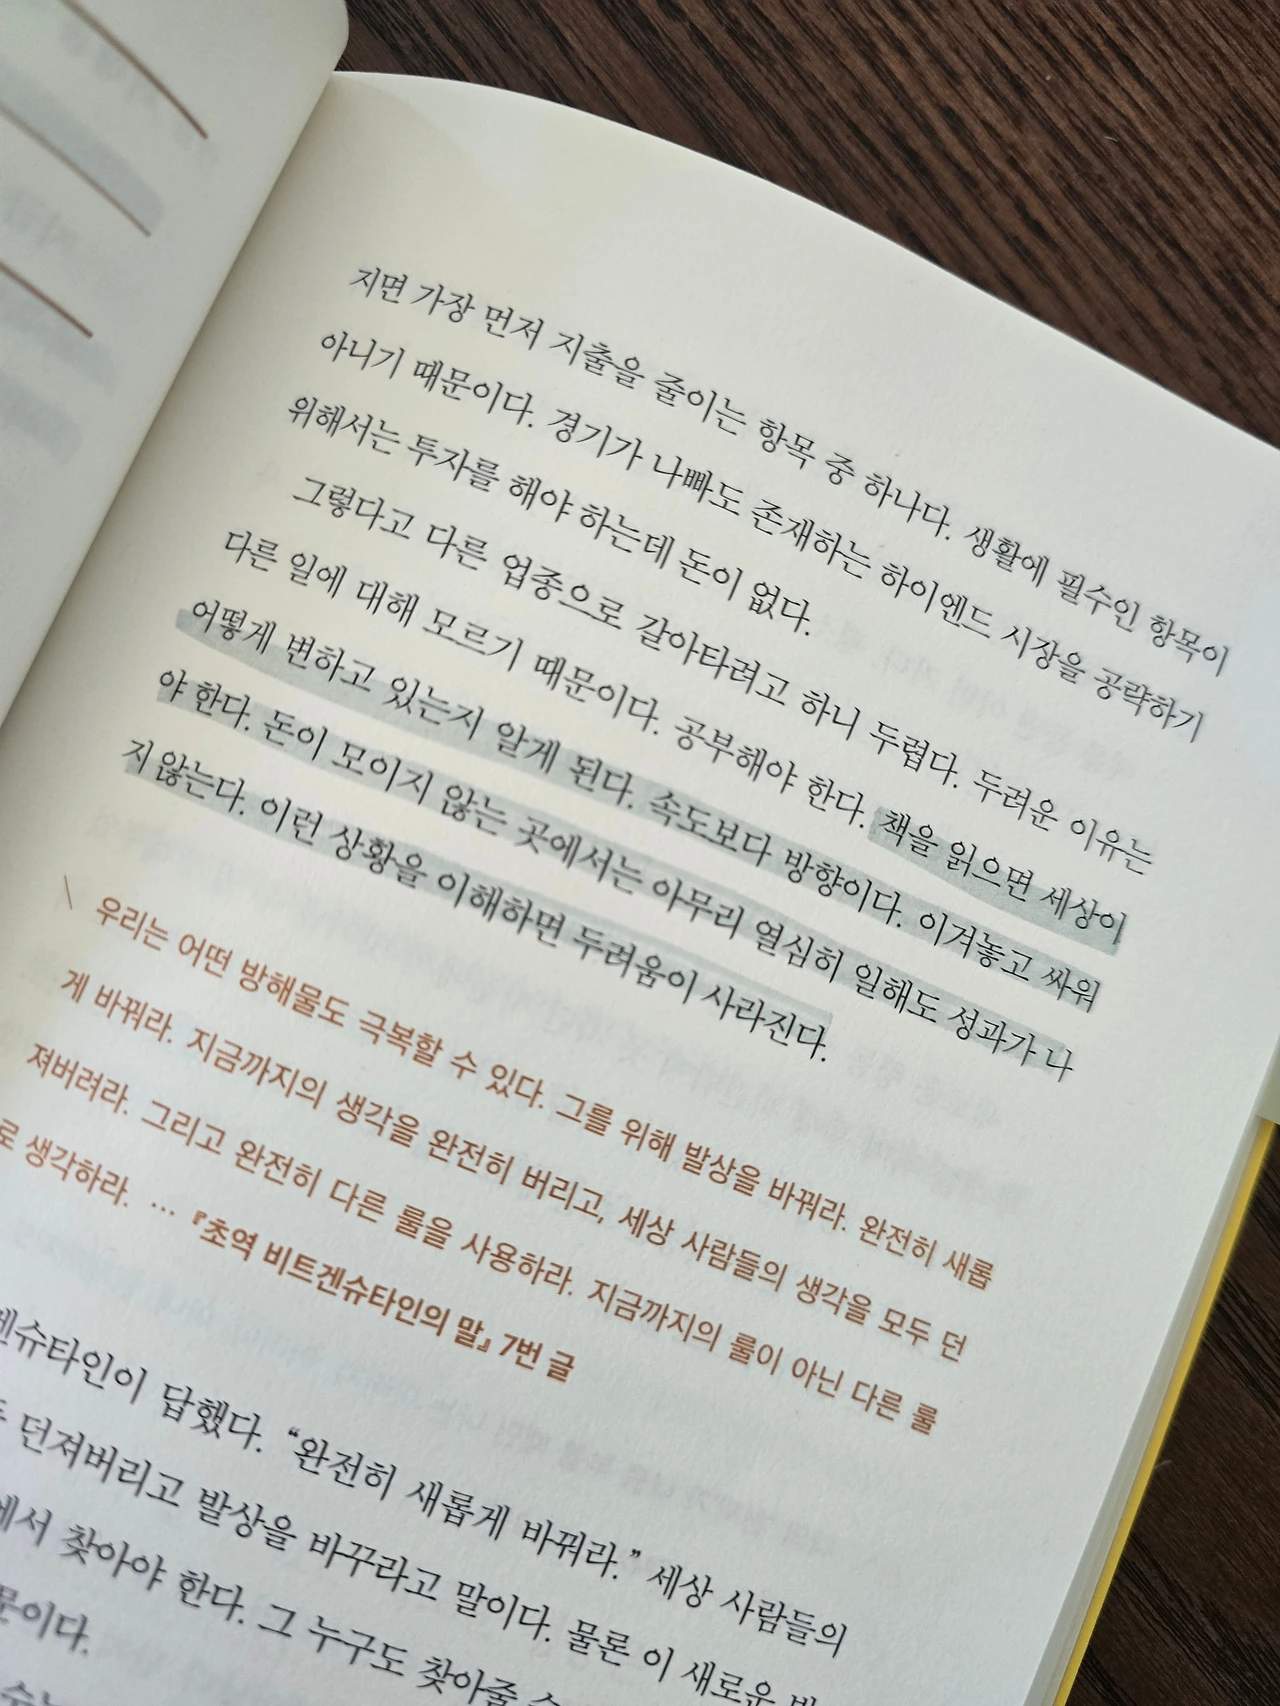 지면 가장 먼저 지출을 줄이는 항목 중 하나다. 생활에 필수인 항목이
아니기 때문이다. 경기가 나빠도 존재하는 하이엔드 시장을 공략하기
위해서는 투자를 해야 하는데 돈이 없다.
그렇다고 다른 업종으로 갈아타려고 하니 두렵다. 두려운 이유는
다른 일에 대해 모르기 때문이다. 공부해야 한다. 책을 읽으면 세상이
어떻게 변하고 있는지 알게 된다. 속도보다 방향이다. 이겨놓고 싸워
야 한다. 돈이 모이지 않는 곳에서는 아무리 열심히 일해도 성과가 나
지 않는다. 이런 상황을 이해하면 두려움이 사라진다.
\ 우리는 어떤 방해물도 극복할 수 있다. 그를 위해 발상을 바꿔라. 완전히 새롭
게 바꿔라. 지금까지의 생각을 완전히 버리고, 세상 사람들의 생각을 모두 던
져버려라. 그리고 완전히 다른 룰을 사용하라. 지금까지의 룰이 아닌 다른 룰
로 생각하라. … 『초역 비트겐슈타인의 말』 7번 글
겐슈타인이 답했다. “완전히 새롭게 바꿔라.” 세상 사람들의
던져버리고 발상을 바꾸라고 말이다. 물론 이 새로운
에서 찾아야 한다. 그 누구도 찾아줄
문이다.